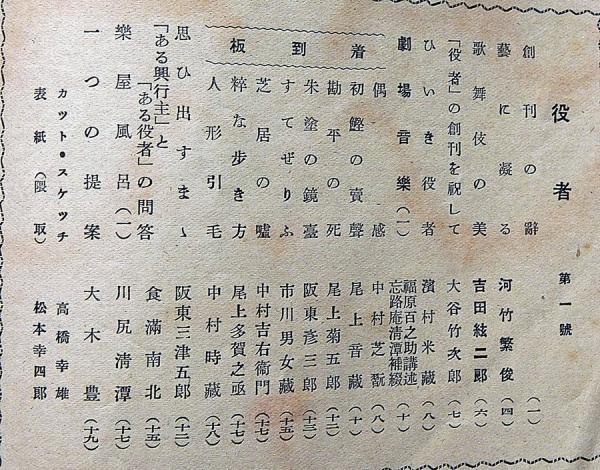 役者 第一號
創刊の辭 (一)
藝に凝る 河竹繁俊 (四)
歌舞伎の美 吉田絃二郎 (六)
「役者」の創刊を祝して 大谷竹次郎 (七)
ひいき役者 濱村米藏 (八)
劇場音樂(一) 福原百之助講述 忘路庵清潭補綴 (十)
着到板
偶感 中村芝翫 (八)
初鰹の賣聲 尾上音藏 (十)
勘平の死 尾上菊五郎 (十二)
朱塗の鏡臺 阪東彦三郎 (十三)
すてぜりふ 市川男女藏 (十五)
芝居の噓 中村吉右衞門 (十七)
粹な步き方 尾上多賀之亟 (十七)
人形引毛 中村時藏 (十八)
思ひ出すまゝ 阪東三津五郎 (十二)
「ある興行主」と「ある役者」の問答 食滿南北 (十五)
樂屋風呂(一) 川尻清潭 (十七)
一つの提案 大木豊 (十九)
カツト・スケツチ 高橋幸雄
表紙(隈取) 松本幸四郎